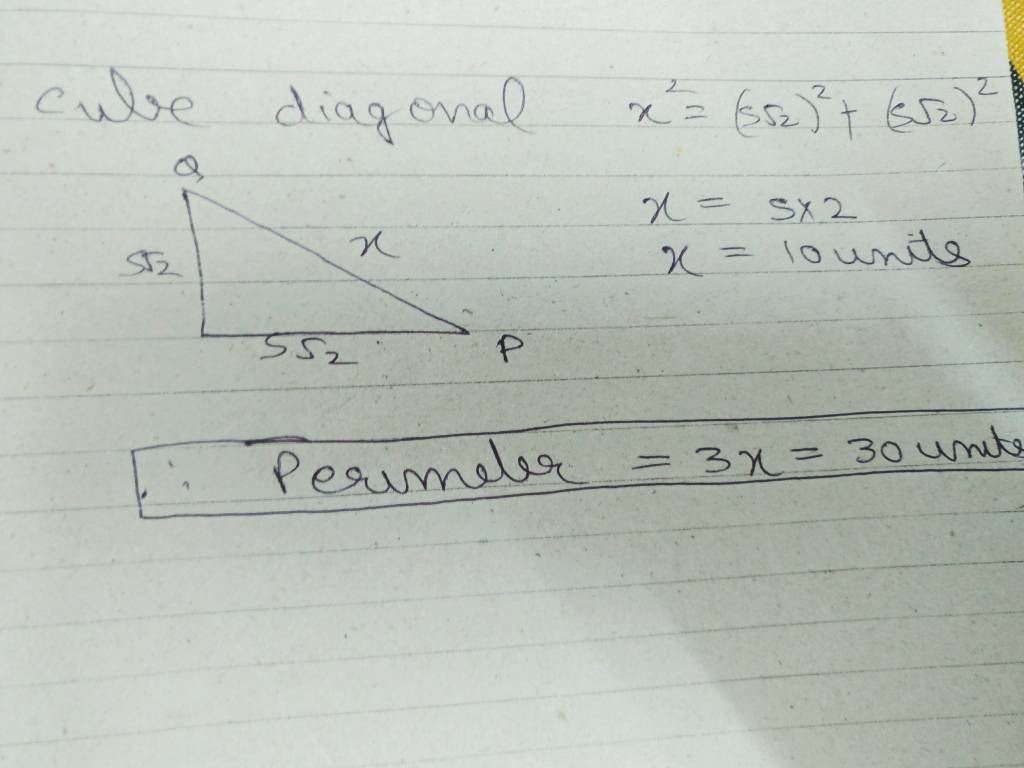 cube diagonal x² = (5√2)² + (5√2)²
Q
x = 5x2
x
5√2
x = 10 units
5√2 P
∴ Perimeter = 3x = 30 units